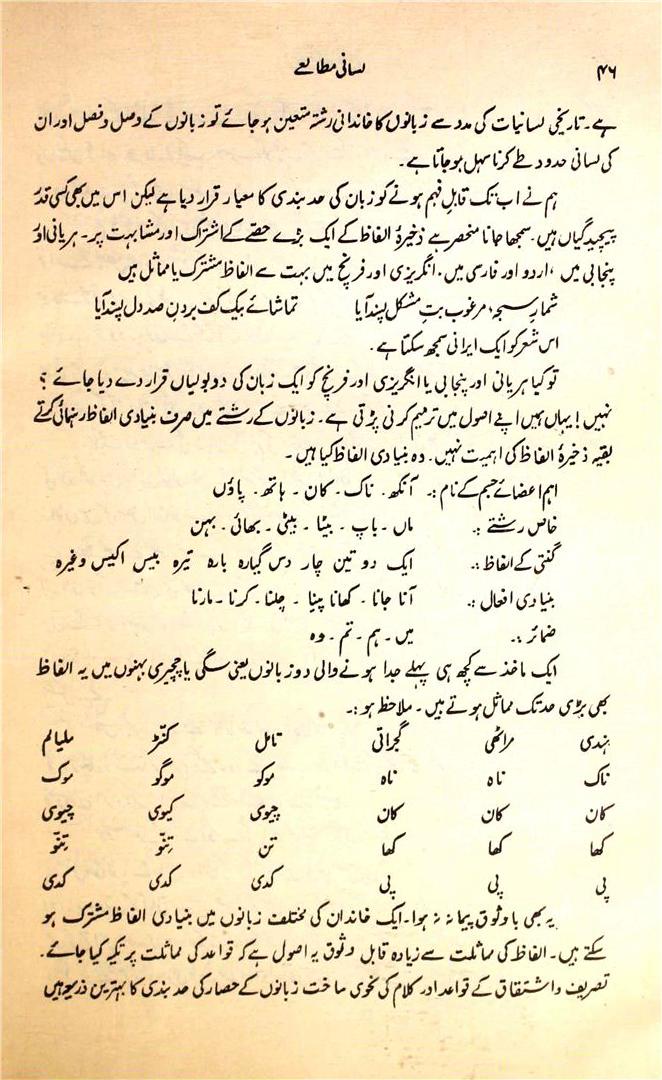 ۴۶ لسانی مطالعے
ہے۔ تاریخی لسانیات کی مدد سے زبانوں کا خاندانی رشتہ متعین ہو جائے تو زبانوں کے وصل و فصل اور ان
کی لسانی حدود طے کرنا سہل ہو جاتا ہے۔
ہم نے اب تک قابلِ فہم ہونے کو زبان کی حد بندی کا معیار قرار دیا ہے لیکن اس میں بھی کسی قدر
پیچیدگیاں ہیں۔ سمجھا جانا منحصر ہے ذخیرۂ الفاظ کے ایک بڑے حصّے کے اشتراک اور مشابہت پر۔ ہریانی اور
پنجابی میں، اردو اور فارسی میں، انگریزی اور فرنچ میں بہت سے الفاظ مشترک یا مماثل ہیں
شمارِ سبحہ، مرغوب بتِ مشکل پسند آیا تماشائے بیک کف بردنِ صد دل پسند آیا
اس شعر کو ایک ایرانی سمجھ سکتا ہے۔
تو کیا ہریانی اور پنجابی یا انگریزی اور فرنچ کو ایک زبان کی دو بولیاں قرار دے دیا جائے؟
نہیں! یہاں ہمیں اپنے اصول میں ترمیم کرنی پڑتی ہے۔ زبانوں کے رشتے میں صرف بنیادی الفاظ رہنمائی کرتے
بقیہ ذخیرۂ الفاظ کی اہمیت نہیں۔ وہ بنیادی الفاظ کیا ہیں۔
اہم اعضائے جسم کے نام :۔ آنکھ۔ ناک۔ کان۔ ہاتھ۔ پاؤں
خاص رشتے :۔ ماں۔ باپ۔ بیٹا۔ بیٹی۔ بھائی۔ بہن
گنتی کے الفاظ :۔ ایک دو تین چار دس گیارہ بارہ تیرہ بیس اکیس وغیرہ
بنیادی افعال :۔ آنا جانا۔ کھانا پینا۔ چلنا۔ کرنا۔ مارنا
ضمائر :۔ میں۔ ہم۔ تم۔ وہ
ایک ماخذ سے کچھ ہی پہلے جدا ہونے والی دو زبانوں یعنی سگی یا چچیری بہنوں میں یہ الفاظ
بھی بڑی حد تک مماثل ہوتے ہیں۔ ملاحظہ ہو :۔
ہندی مراٹھی گجراتی تامل کنّڑ ملیالم
ناک ناہ ناہ موکو موگو موک
کان کان کان چیوی کیوی چیوی
کھا کھا کھا تن تِنّو تِنّو
پی پی پی کدی کدی کدی
یہ بھی باوثوق پیمانہ نہ ہوا۔ ایک خاندان کی مختلف زبانوں میں بنیادی الفاظ مشترک ہو
سکتے ہیں۔ الفاظ کی مماثلت سے زیادہ قابلِ وثوق یہ اصول ہے کہ قواعد کی مماثلت پر تکیہ کیا جائے۔
تصریف و اشتقاق کے قواعد اور کلام کی نحوی ساخت زبانوں کے حصار کی حد بندی کا بہترین ذریعہ ہیں